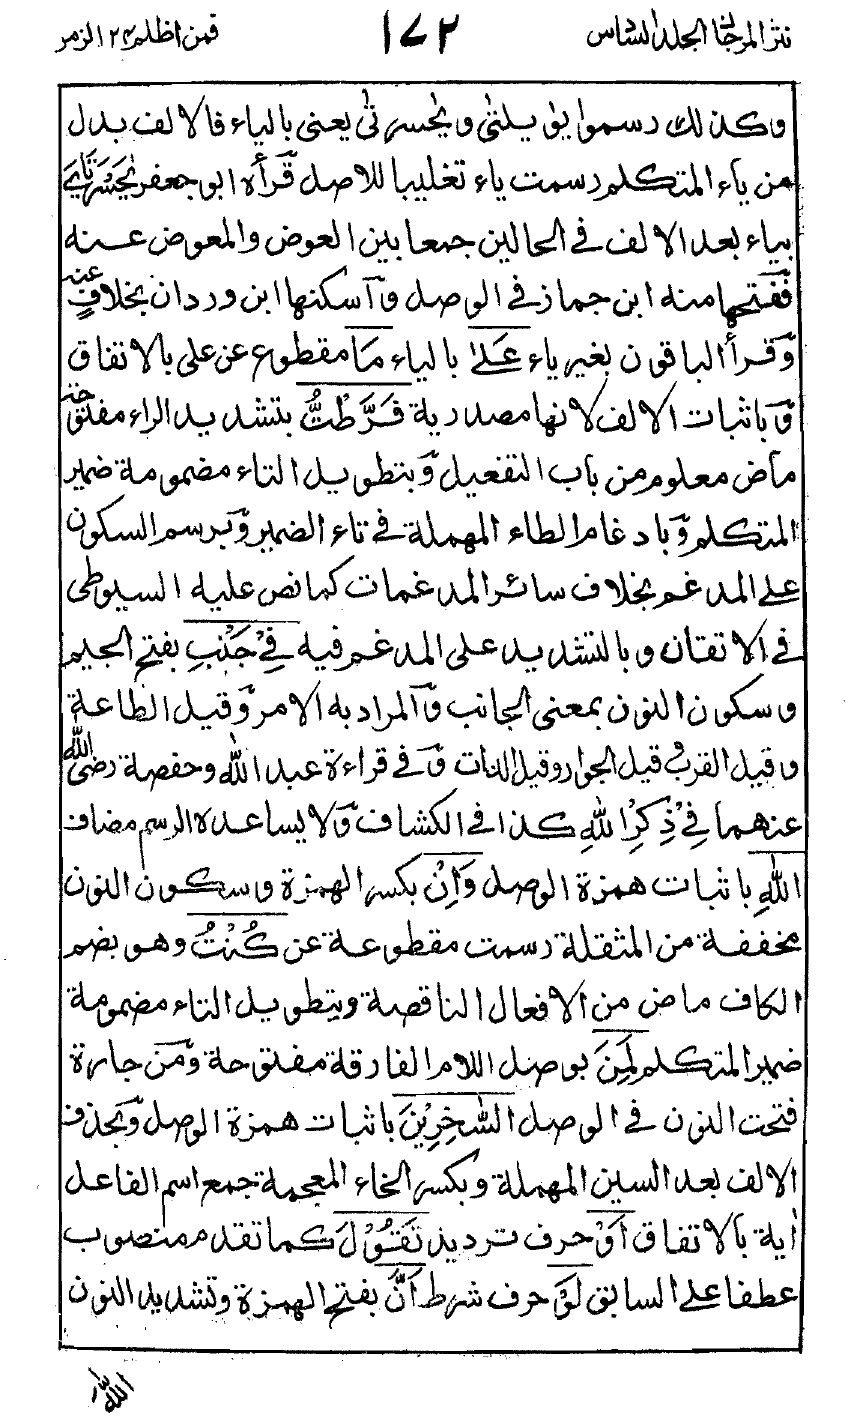 نثر المرجان المجلد السادس ١٧٢ فمن اظلم ٢٤ الزمر
وكذلك رسموا يٰويلتىٰ ويٰحسرتىٰ يعنى بالياء فالالف بدل
من ياء المتكلم رسمت ياء تغليبا للاصل قرأه ابو جعفر يٰحَسْرَتَايَ
بياء بعد الالف فى الحالين جمعا بين العوض والمعوض عنه
ففتحها منه ابن جماز فى الوصل وآسكنها ابن وردان بخلافٍ عنه
وقرأ الباقون بغير ياء عَلىٰ بالياء مَا مقطوع عن على بالاتفاق
وباثبات الالف لانها مصدرية فَرَّطْتُّ بتشديد الراء مفتوحة
ماض معلوم من باب التفعيل وبتطويل التاء مضمومة ضمير
المتكلم وبادغام الطاء المهملة فى تاء الضمير وبرسم السكون
على المدغم بخلاف سائر المدغمات كما نص عليه السيوطى
فى الاتقان وبالتشديد على المدغم فيه فِىْ جَنْبِ بفتح الجيم
وسكون النون بمعنى الجانب والمراد به الامر وقيل الطاعة
وقيل القرب وقيل الجوار وقيل الذات وفى قراءة عبد الله وحفصة رضى الله
عنهما فِىْ ذِكْرِ اللهِ كذا فى الكشاف ولا يساعده الرسم مضاف
اللهِ باثبات همزة الوصل وَاِنْ بكسر الهمزة وسكون النون
مخففة من المثقلة رسمت مقطوعة عن كُنْتُ وهو بضم
الكاف ماض من الافعال الناقصة وبتطويل التاء مضمومة
ضمير المتكلم لَمِنَ بوصل اللام الفارقة مفتوحة ومن جارة
فتحت النون فى الوصل السّٰخِرِيْنَ باثبات همزة الوصل وبحذف
الالف بعد السين المهملة وبكسر الخاء المعجمة جمع اسم الفاعل
اٰية بالاتفاق اَوْ حرف ترديد تَقُوْلَ كما تقدم منصوب
عطفا على السابق لَوْ حرف شرط اَنَّ بفتح الهمزة وتشديد النون
اللّٰهَ